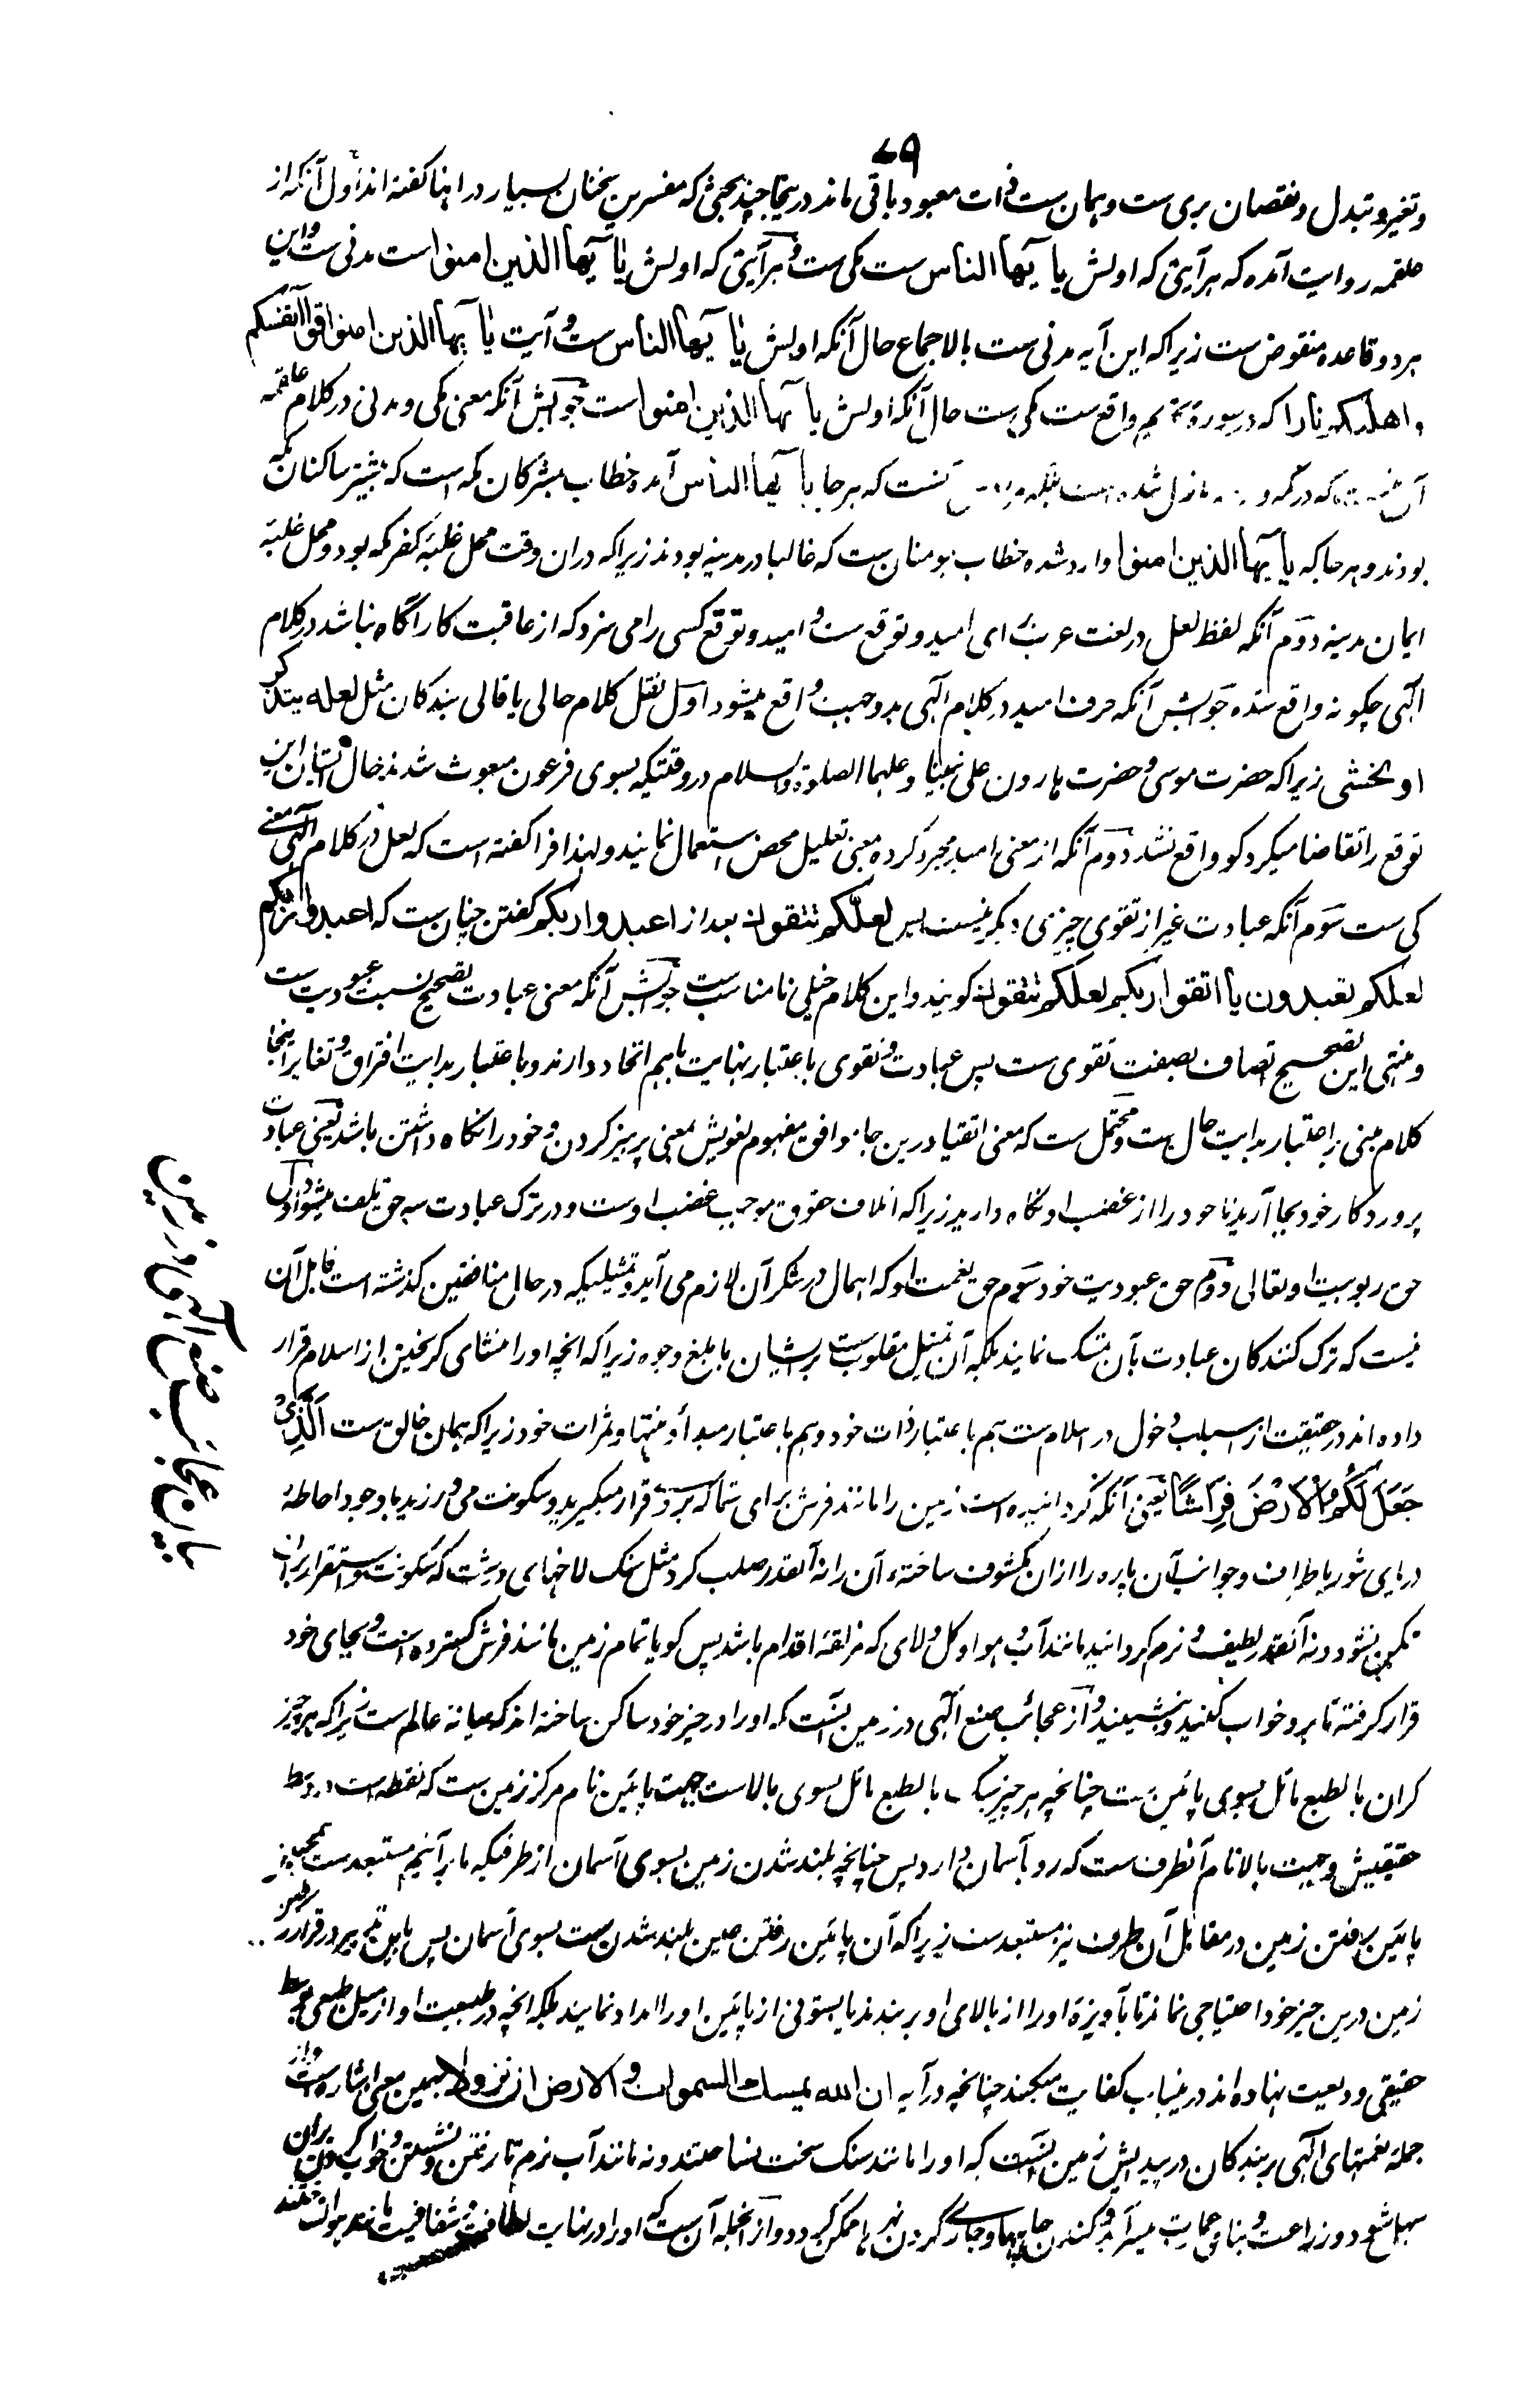 ۷۹
وتغیر و تبدل و نقصان بری ست و همان ست ذات معبود باقی ماند درینجا چند بحثی که مفسرین سخنان بسیار در اینها کفته اند اول آنکه از
علقمه روایت آمده که هر آیتی که اولش یا ایها الناس ست مکی ست و هر آیتی که اولش یا ایها الذین امنوا است مدنی ست و این
هر دو قاعده منقوض ست زیرا که این آیه مدنی ست بالاجماع حال آنکه اولش یا ایها الناس ست و آیت یا ایها الذین امنوا قوا انفسکم
و اهلیکم نارا که در سورهٔ تحریم واقع ست مکی ست حال آنکه اولش یا ایها الذین امنوا است جوابش آنکه معنی مکی و مدنی در کلام علقمه
آن نیست که در مکه و نازل شده است بلکه که هر جا یا ایها الناس آمده خطاب بمشرکان مکه است که بیشتر ساکنان مکه
بودند و هر جا که یا ایها الذین امنوا وارد شده خطاب بمومنان ست که غالبا در مدینه بودند زیرا که دران وقت محل غلبهٔ کفر مکه بود و محل غلبهٔ
ایمان مدینه دوم آنکه لفظ لعل در لغت عرب برای امید و توقع ست و امید و توقع کسی را می سزد که از عاقبت کار آگاه نباشد در کلام
الهی چکونه واقع شده جوابش آنکه حرف امید در کلام الهی بدو جهت واقع میشود اول نقل کلام حالی یا قالی بندکان مثل لعله یتذکر
او یخشی زیرا که حضرت موسی و حضرت هارون علی نبینا و علیهما الصلوة والسلام در وقتیکه بسوی فرعون مبعوث شدند حال ایشان این
توقع را تقاضا میکرد کو واقع نشد دوم آنکه از معنی امید مجرد کرده بمعنی تعلیل محض استعمال نمایند و لهذا فرا کفته است که لعل در کلام الهی بمعنی
کی ست سوم آنکه عبادت غیر از تقوی چیزی دیگر نیست پس لعلکم تتقون بعد از اعبدوا ربکم کفتن چنان ست که اعبدوا ربکم
لعلکم تعبدون یا اتقوا ربکم لعلکم تتقون کویند و این کلام خیلی نامناسب ست جوابش آنکه معنی عبادت تصحیح نسبت عبودیت ست
و منتهی این تصحیح اتصاف بصفت تقوی ست پس عبادت و تقوی باعتبار نهایت باهم اتحاد دارند و باعتبار بدایت افتراق و تغایر اینجا
کلام مبنی بر اعتبار بدایت حال ست و محتمل ست که معنی اتقا درین جا موافق مفهوم لغویش بمعنی پرهیز کردن و خود را نکاه داشتن باشد یعنی عبادت
پروردکار خود بجا آرید تا خود را از غضب او نکاه دارید زیرا که اتلاف حقوق موجب غضب اوست و در ترک عبادت سه حق تلف میشود اول
حق ربوبیت او تعالی دوم حق عبودیت خود سوم حق نعمت او که اهمال در شکر آن لازم می آید و تمثیلیکه در حال منافقین کذشته است قابل آن
نیست که ترک کنندکان عبادت بآن تمسک نمایند بلکه آن تمثیل مقلوب ست بر ایشان بابلغ وجوه زیرا که انچه او را منشای کریختن از اسلام قرار
داده اند در حقیقت از اسباب دخول در اسلام ست هم باعتبار ذات خود و هم باعتبار مبدأ و منتها و ثمرات خود زیرا که همان خالق ست الَّذِیْ
جَعَلَ لَكُمُ الْاَرْضَ فِرَاشًا یعنی آنکه کردانیده است زمین را مانند فرش برای شما که برو قرار میکیرید و سکونت می ورزید با وجود احاطهٔ
دریای شور باطراف و جوانب آن پاره را ازان مکشوف ساخته آن را نه آنقدر صلب کرد مثل سنک لاخهای درشت که سکونت و استقرار بران
ممکن نشود و نه آنقدر لطیف و نرم کردانید مانند آب و هوا و کل و لای که مزلقهٔ اقدام باشد پس کویا تمام زمین مانند فرش کسترده است و بجای خود
قرار کرفته تا برو خواب کنید و بنشینید و از عجائب صنع الهی در زمین اینست که او را در حیز خود ساکن ساخته اند که میانهٔ عالم ست زیرا که هر چیز
کران بالطبع مائل بسوی پائین ست چنانچه هر چیز سبک بالطبع مائل بسوی بالاست و جهت پائین نام مرکز زمین ست که نقطه است در وسط
حقیقیش و جهت بالا نام آنطرف ست که رو بآسمان دارد پس چنانچه بلند شدن زمین بسوی آسمان از طرفیکه ما برآنیم مستبعد ست همچنین
پائین رفتن زمین در مقابل آن طرف نیز مستبعد ست زیرا که آن پائین رفتن عین بلند شدن ست بسوی آسمان پس باین تدبیر در قرار کرفتن
زمین درین حیز خود احتیاجی نماند تا بآویزهٔ او را از بالای او بربندند یا بستونی از پائین او را امداد نمایند بلکه انچه در طبیعت او از میل طبعی بوسط
حقیقی ودیعت نهاده اند درین باب کفایت میکند چنانچه در آیه ان الله یمسک السموات و الارض ان تزولا بهمین معنی اشاره است و از
جملهٔ نعمتهای الهی بر بندکان در پیدایش زمین اینست که او را مانند سنک سخت نساختند و نه مانند آب نرم تا رفتن و نشستن و خواب کردن بران
سهل شود و زراعت و بنا و عمارت میسر آید و کندن چاهها و جاری کردن نهرها ممکن کردد و از انجمله آن ست که او را در نهایت لطافت و شفافیت مانند هوا نساختند
بیان عجائب صنع الهی در آفرینش زمین